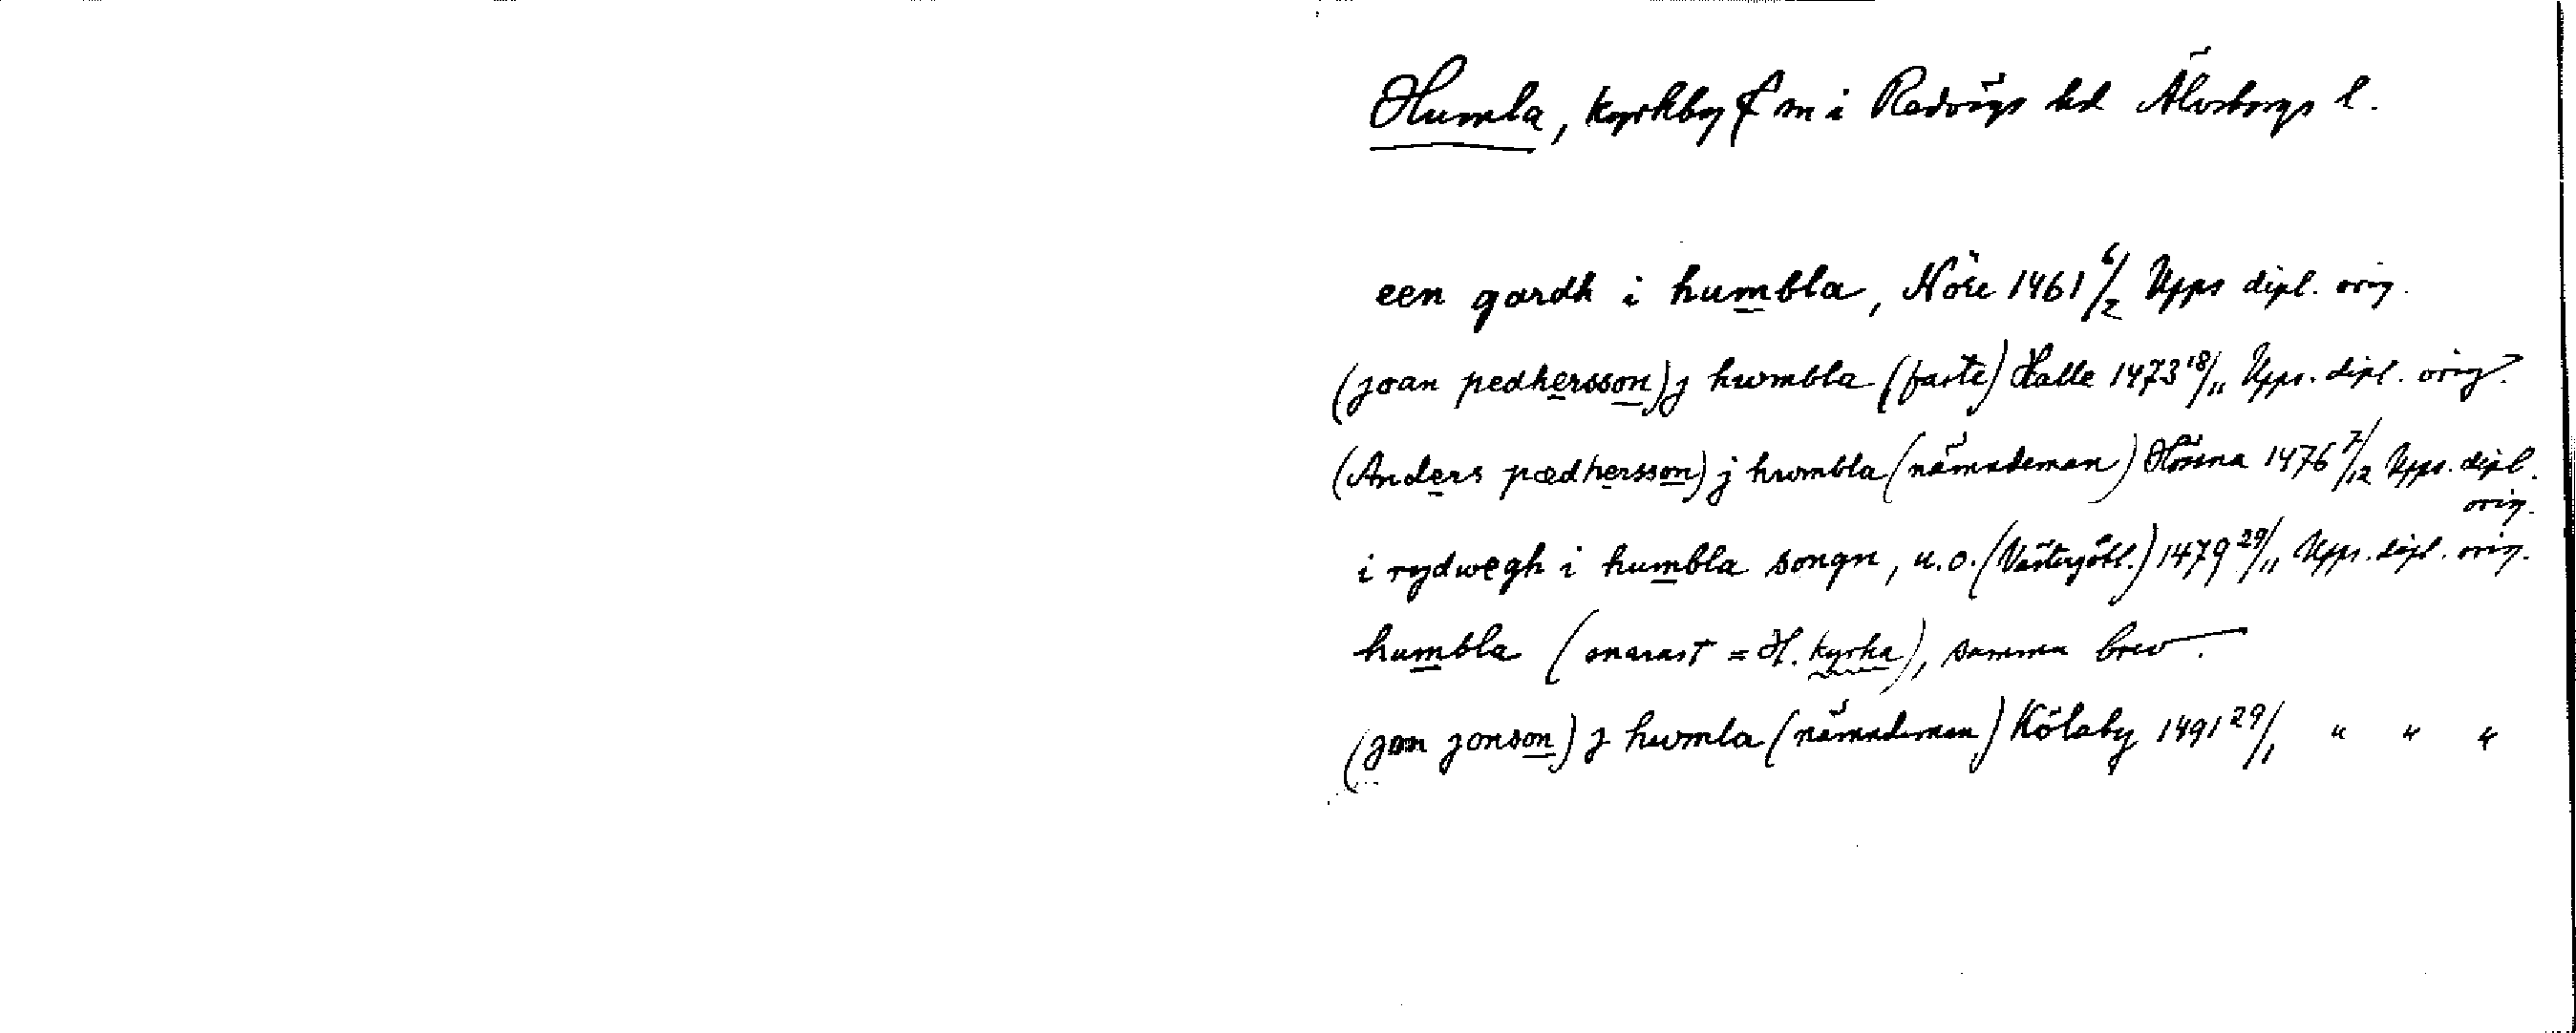 Humla, kyrkby f m i Redvägs hd Älvsborgs l.
een gardh i humbla, Nöre 1461 6/2 Upps dipl. orig.
(joan pedhersson) j humbla (faste) Halle 1473 18/11 Upps. dipl. orig.
(Anders pædhersson) j humbla (nämndeman) Hössna 1476 7/12 Upps. dipl.
orig.
i rydwegh i humbla songn, u.o. (Västergötl.) 1479 29/11 Upps. dipl. orig.
humbla (snarast = H. kyrka), samma brev.
(jon jonson) j humla (nämndeman) Kölaby 1491 29/1 " " "